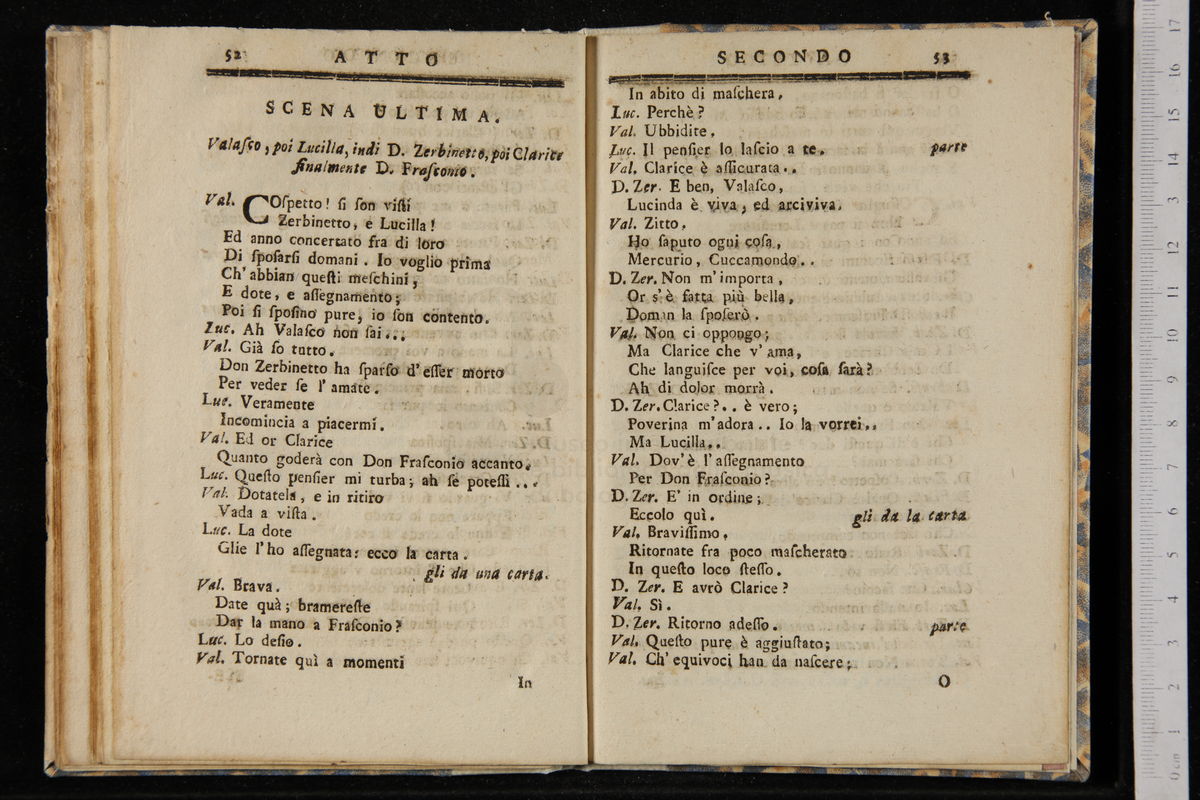 52 ATTO
SCENA ULTIMA.
Valaſco, poi Lucilla, indi D. Zerbinetto, poi Clarice
finalmente D. Fraſconio.
Val. COſpetto! ſi ſon viſti
Zerbinetto, e Lucilla!
Ed anno concertato fra di loro
Di ſpoſarſi domani. Io voglio prima
Ch'abbian queſti meſchini,
E dote, e aſſegnamento;
Poi ſi ſpoſino pure, io ſon contento.
Luc. Ah Valaſco non ſai...
Val. Già ſo tutto.
Don Zerbinetto ha ſparſo d'eſſer morto
Per veder ſe l'amate.
Luc. Veramente
Incomincia a piacermi.
Val. Ed or Clarice
Quanto goderà con Don Fraſconio accanto.
Luc. Queſto penſier mi turba; ah ſe poteſſi...
Val. Dotatela, e in ritiro
Vada a viſta.
Luc. La dote
Glie l'ho aſſegnata: ecco la carta.
gli da una carta.
Val. Brava.
Date quà; bramereſte
Dar la mano a Fraſconio?
Luc. Lo deſio.
Val. Tornate quì a momenti
In
SECONDO 53
In abito di maſchera,
Luc. Perchè?
Val. Ubbidite,
Luc. Il penſier lo laſcio a te. parte
Val. Clarice è aſſicurata..
D. Zer. E ben, Valaſco,
Lucinda è viva, ed arciviva.
Val. Zitto,
Ho ſaputo ogni coſa,
Mercurio, Cuccamondo..
D. Zer. Non m'importa,
Or s'è fatta più bella,
Doman la ſpoſerò.
Val. Non ci oppongo;
Ma Clarice che v'ama,
Che languiſce per voi, coſa ſarà?
Ah di dolor morrà.
D. Zer. Clarice?.. è vero;
Poverina m'adora.. Io la vorrei..
Ma Lucilla..
Val. Dov'è l'aſſegnamento
Per Don Fraſconio?
D. Zer. E' in ordine;
Eccolo quì. gli da la carta
Val. Braviſſimo,
Ritornate fra poco maſcherato
In queſto loco ſteſſo.
D. Zer. E avrò Clarice?
Val. Sì.
D. Zer. Ritorno adeſſo. parte
Val. Queſto pure è aggiuſtato;
Val. Ch'equivoci han da naſcere;
O
0 cm 1 2 3 4 5 6 7 8 9 10 11 12 13 14 15 16 17